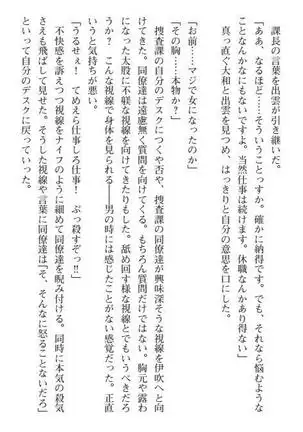 課長の言葉を出雲が引き継いだ。
「ああ、なるほど……そういうことっすか。確かに納得です。でも、それなら悩むような
ことなんかなにもないですよ。当然仕事は続けます。休職なんかあり得ない」
真っ直ぐ大和と出雲を見つめ、はっきりと自分の意思を口にした。
「お前……マジで女になったのか」
「その胸……本物か？」
捜査課の自分のデスクにつくや否や、捜査課の同僚達が興味深そうな視線を伊吹へと向
けてきた。同僚達は遠慮無く質問を向けてくる。もちろん質問だけではない。胸元や露わ
になった太股に不躾な視線を向けてきたりもした。舐め回す様な視線とでもいうべきだろ
うか？そんな視線で身体を見られる――男の時には感じたことがない感覚だった。正直
いうと気持ちが悪い。
「うるせぇ！　てめえら仕事しろ仕事！　ぶっ殺すぞっ!!」
不快感を訴えつつ視線をナイフのように細めて同僚達を睨み付ける。同時に本気の殺気
さえも飛ばして見せた。そうした視線や言葉に同僚達は「そ、そんなに怒ることないだろ」
といって自分のデスクに戻っていった。